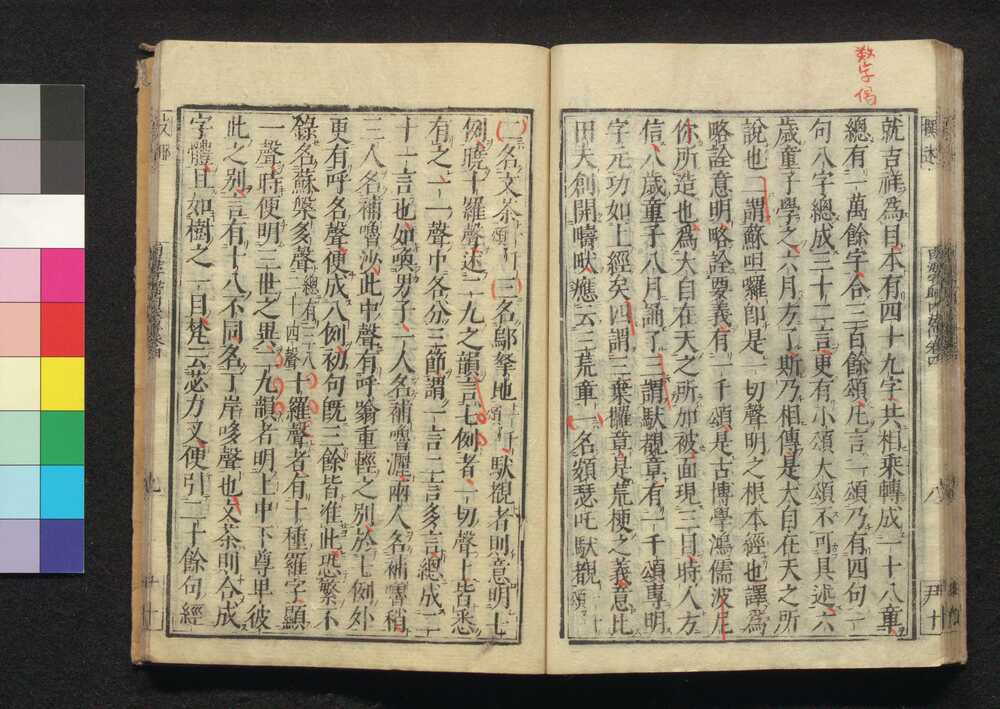 数字偈
就吉祥爲目本有四十九字共相乘轉成一十八章
總有一萬餘字合三百餘頌凡言一頌乃有四句一
句八字總成三十二言更有小頌大頌不可具述六
歲童子學之六月方了斯乃相傳是大自在天之所
說也二謂蘇呾囉即是一切聲明之根本經也譯爲
略詮意明略詮要義有一千頌是古博學鴻儒波尼
你所造也爲大自在天之所加被面現三目時人方
信八歲童子八月誦了三謂馱覩章有一千頌專明
字元功如上經矣四謂三棄攞章是荒梗之義意比
田夫創開疇畎應云三荒章一名頞瑟吒馱覩頌
二名文荼頌三名鄔拏地頌馱覩者則意明七
例曉十羅聲述二九之韻言七例者一切聲上皆悉
有之一一聲中各分三節謂一言二言多言總成二
十一言也如喚男子一人名補嚕沙兩人名補嚕稍
三人名補嚕沙此中聲有呼噏重輕之別於七例外
更有呼名聲便成八例初句既三餘皆准此恐繁不
錄名蘇槃多聲總有三八二十四聲十羅聲者有十種羅字顯
一聲時便明三世之異二九韻者明上中下尊卑彼
此之別言有十八不同名丁岸哆聲也文荼則合成
字體且如樹之一目梵云苾力叉便引二十餘句經